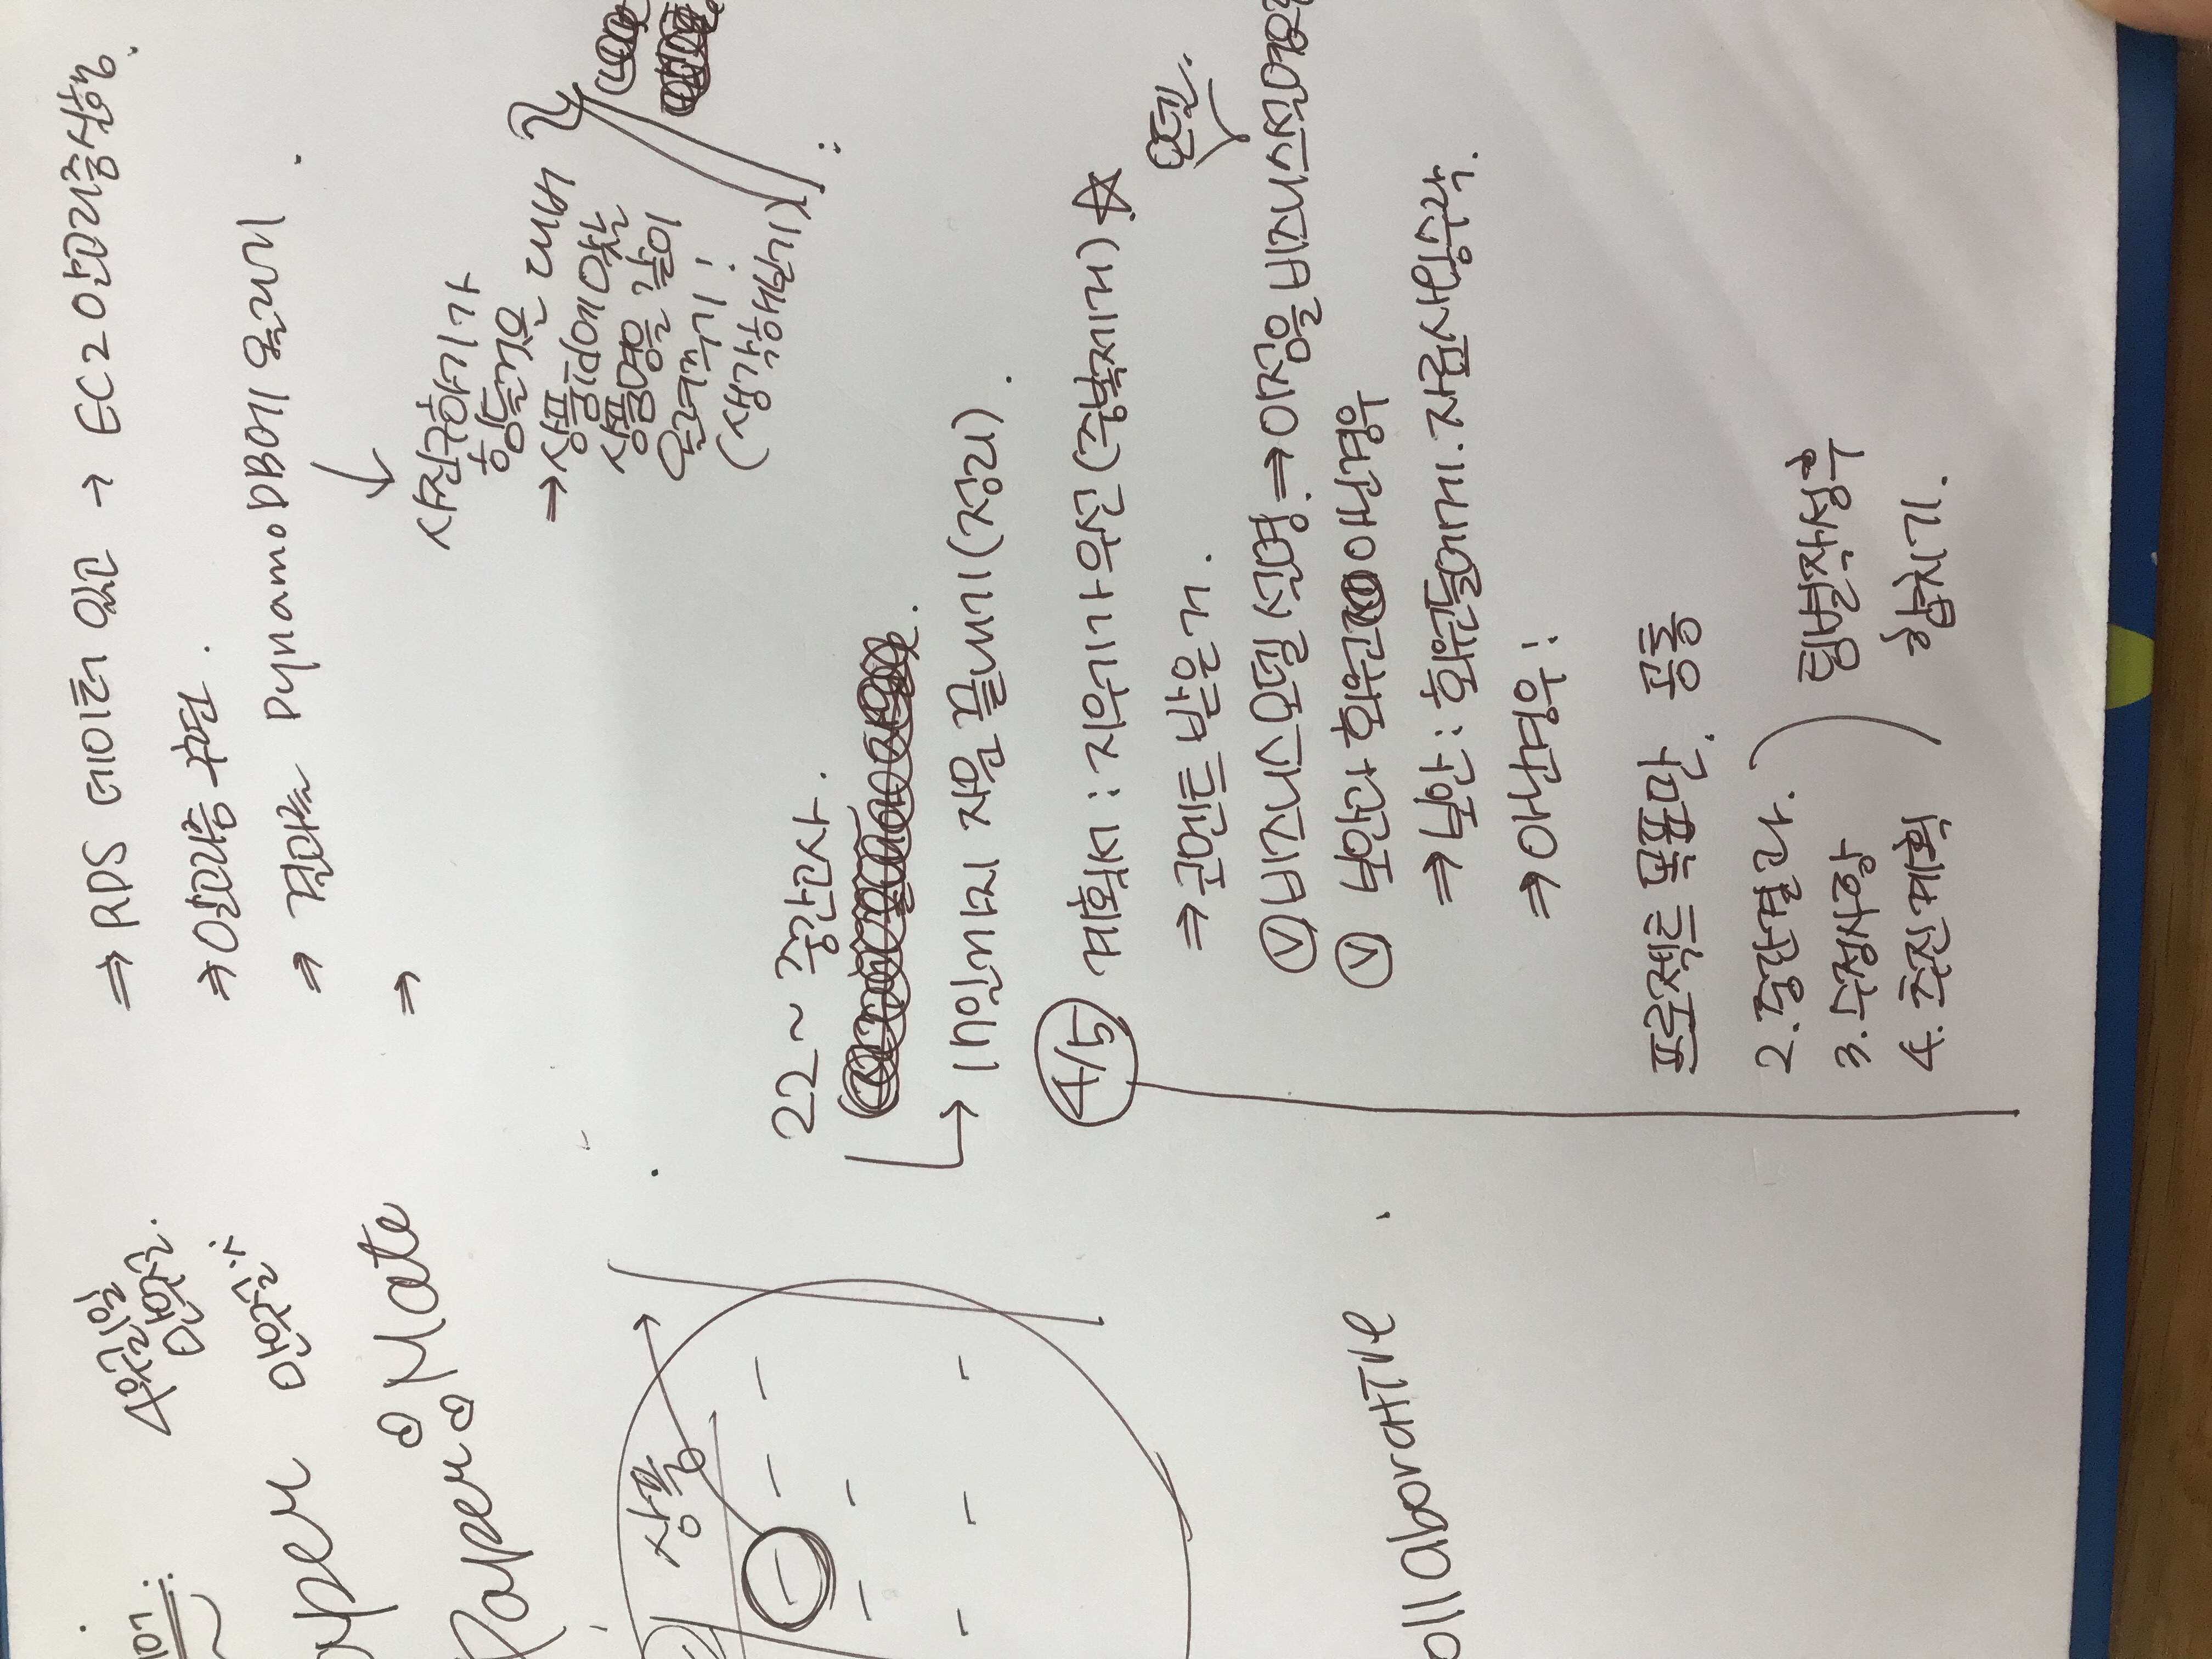 4월1일
만우절.
만우절
aper
Paper Mate
상품
ollaborative
⇒ RDS 데이터 있고 → EC2 알고리즘실행.
⇒ 알고리즘 구현.
⇒ 결과를 DynamoDB에 올리기.
⇒
사진구하기가
힘들것을 대비
→ 상품id에 맞는
상품명을 같이
올려주기!
(생각해보기)
22~ 중간고사.
→ 17일까지 자문 끝내기(정리).
4/5 계획서: 지우기가우선(중복제거)☆
⇒ 코멘트 받은거.
모델.
Ⓥ 비즈니스모델 설명. ⇒ 이점을 비즈니스설명으로
Ⓥ 보안과 회원 아닌경우
⇒ 보안: 회원들에게. 자료사용수락.
⇒ 아닌경우!
프로젝트 목표만. 공통
2. 중간결과.
3. 수정사항
4. 추진계획
팀별작성후
합치기.